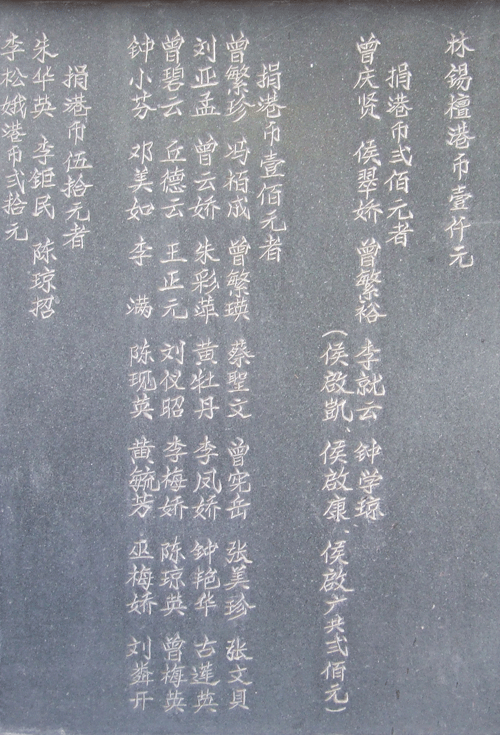 林锡檀港币壹仟元
捐港币弍佰元者
曾庆贤 侯翠娇 曾繁裕 李就云 钟学琼
(侯啟凯、侯啟康、侯啟广共弍佰元)
捐港币壹佰元者
曾繁珍 冯栢成 曾繁瑛 蔡聖文 曾宪岳 张美珍 张文貝
刘亚孟 曾云娇 朱彩萍 黄牡丹 李凤娇 钟艳华 古莲英
曾碧云 丘德云 王正元 刘仪昭 李梅娇 陈琼英 曾梅英
钟小芬 邓美如 李满 陈现英 黄毓芳 巫梅娇 刘粦开
捐港币伍拾元者
朱华英 李钜民 陈琼招
李松娥港币弍拾元